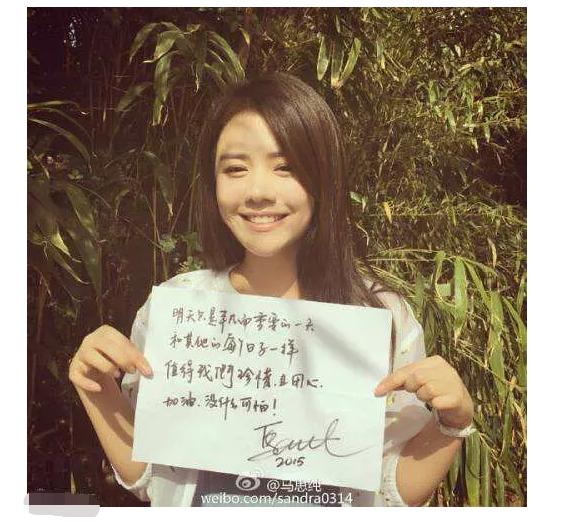 明天只是平凡而重要的一天
和其他的每个日子一样
值得我们珍惜,且用心.
加油、没什么可怕!
2015
@马思纯
weibo.com/sandra0314